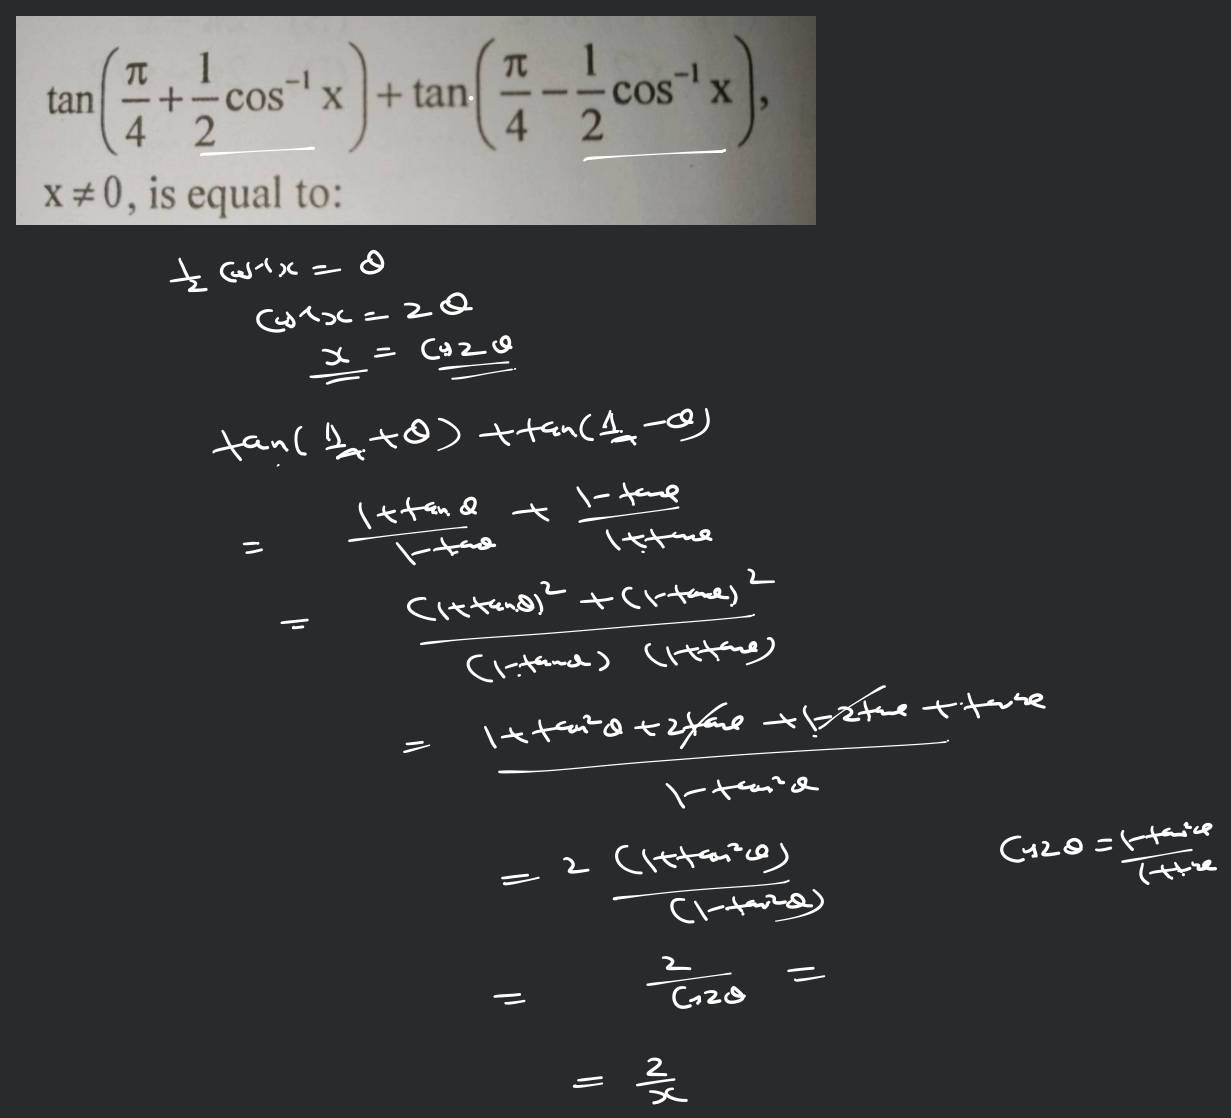 tan(π/4 + 1/2 cos⁻¹ x) + tan(π/4 − 1/2 cos⁻¹ x),
x ≠ 0, is equal to:
1/2 cos⁻¹x = θ
cos⁻¹x = 2θ
x = cos2θ
tan(π/4 + θ) + tan(π/4 − θ)
= (1+tanθ)/(1−tanθ) + (1−tanθ)/(1+tanθ)
= ((1+tanθ)² + (1−tanθ)²)/((1−tanθ) (1+tanθ))
= (1+tan²θ+2tanθ+1−2tanθ+tan²θ)/(1−tan²θ)
= 2 (1+tan²θ)/(1−tan²θ) cos2θ = (1−tan²θ)/(1+tan²θ)
= 2/cos2θ =
= 2/x